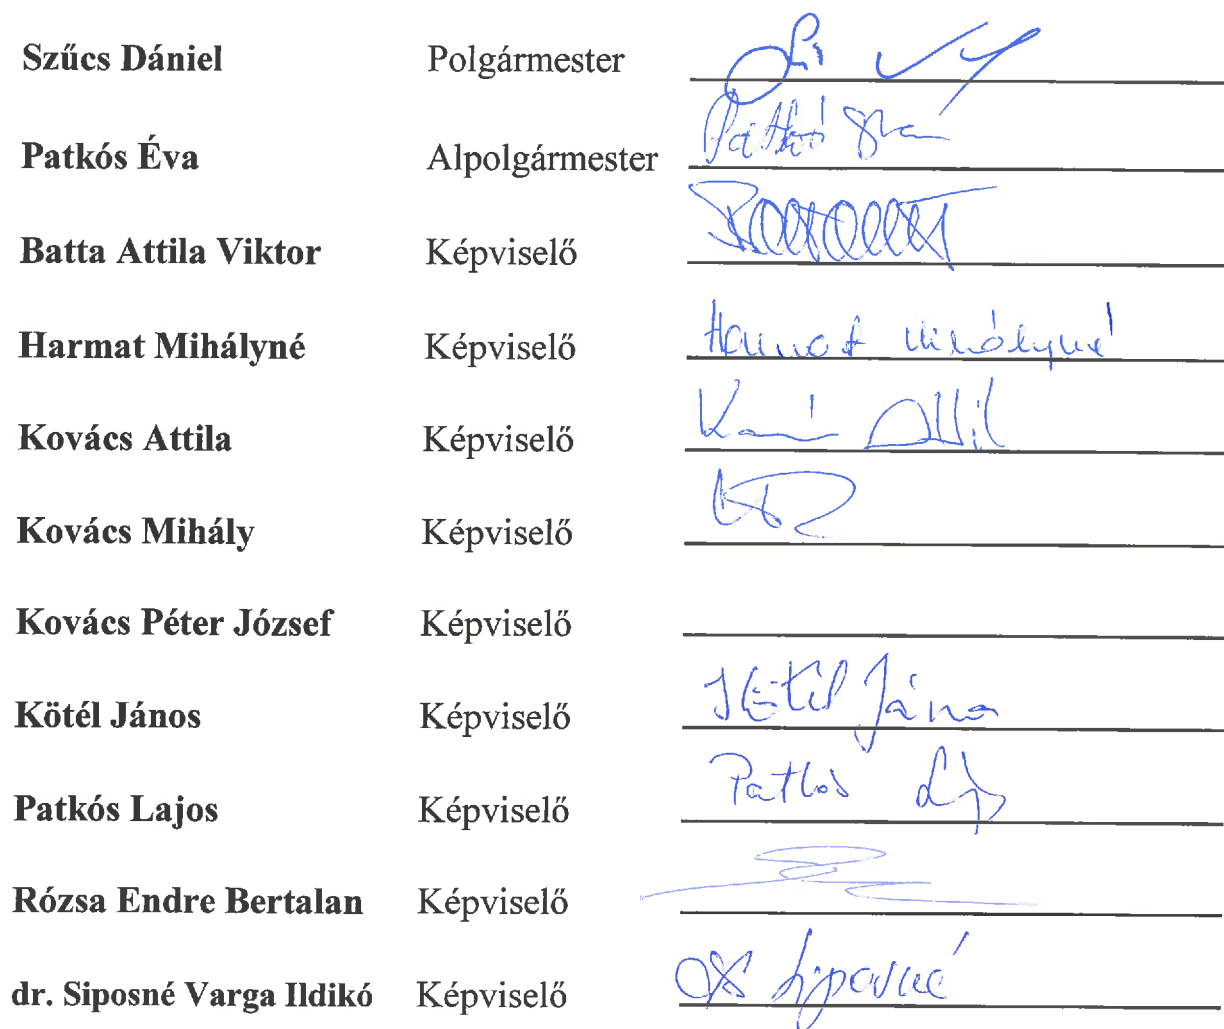 Szűcs Dániel Polgármester
Patkós Éva Alpolgármester Patkó Éva
Batta Attila Viktor Képviselő
Harmat Mihályné Képviselő Harmat Mihályné
Kovács Attila Képviselő
Kovács Mihály Képviselő
Kovács Péter József Képviselő
Kötél János Képviselő Kötél János
Patkós Lajos Képviselő Patkós
Rózsa Endre Bertalan Képviselő
dr. Siposné Varga Ildikó Képviselő Siposné